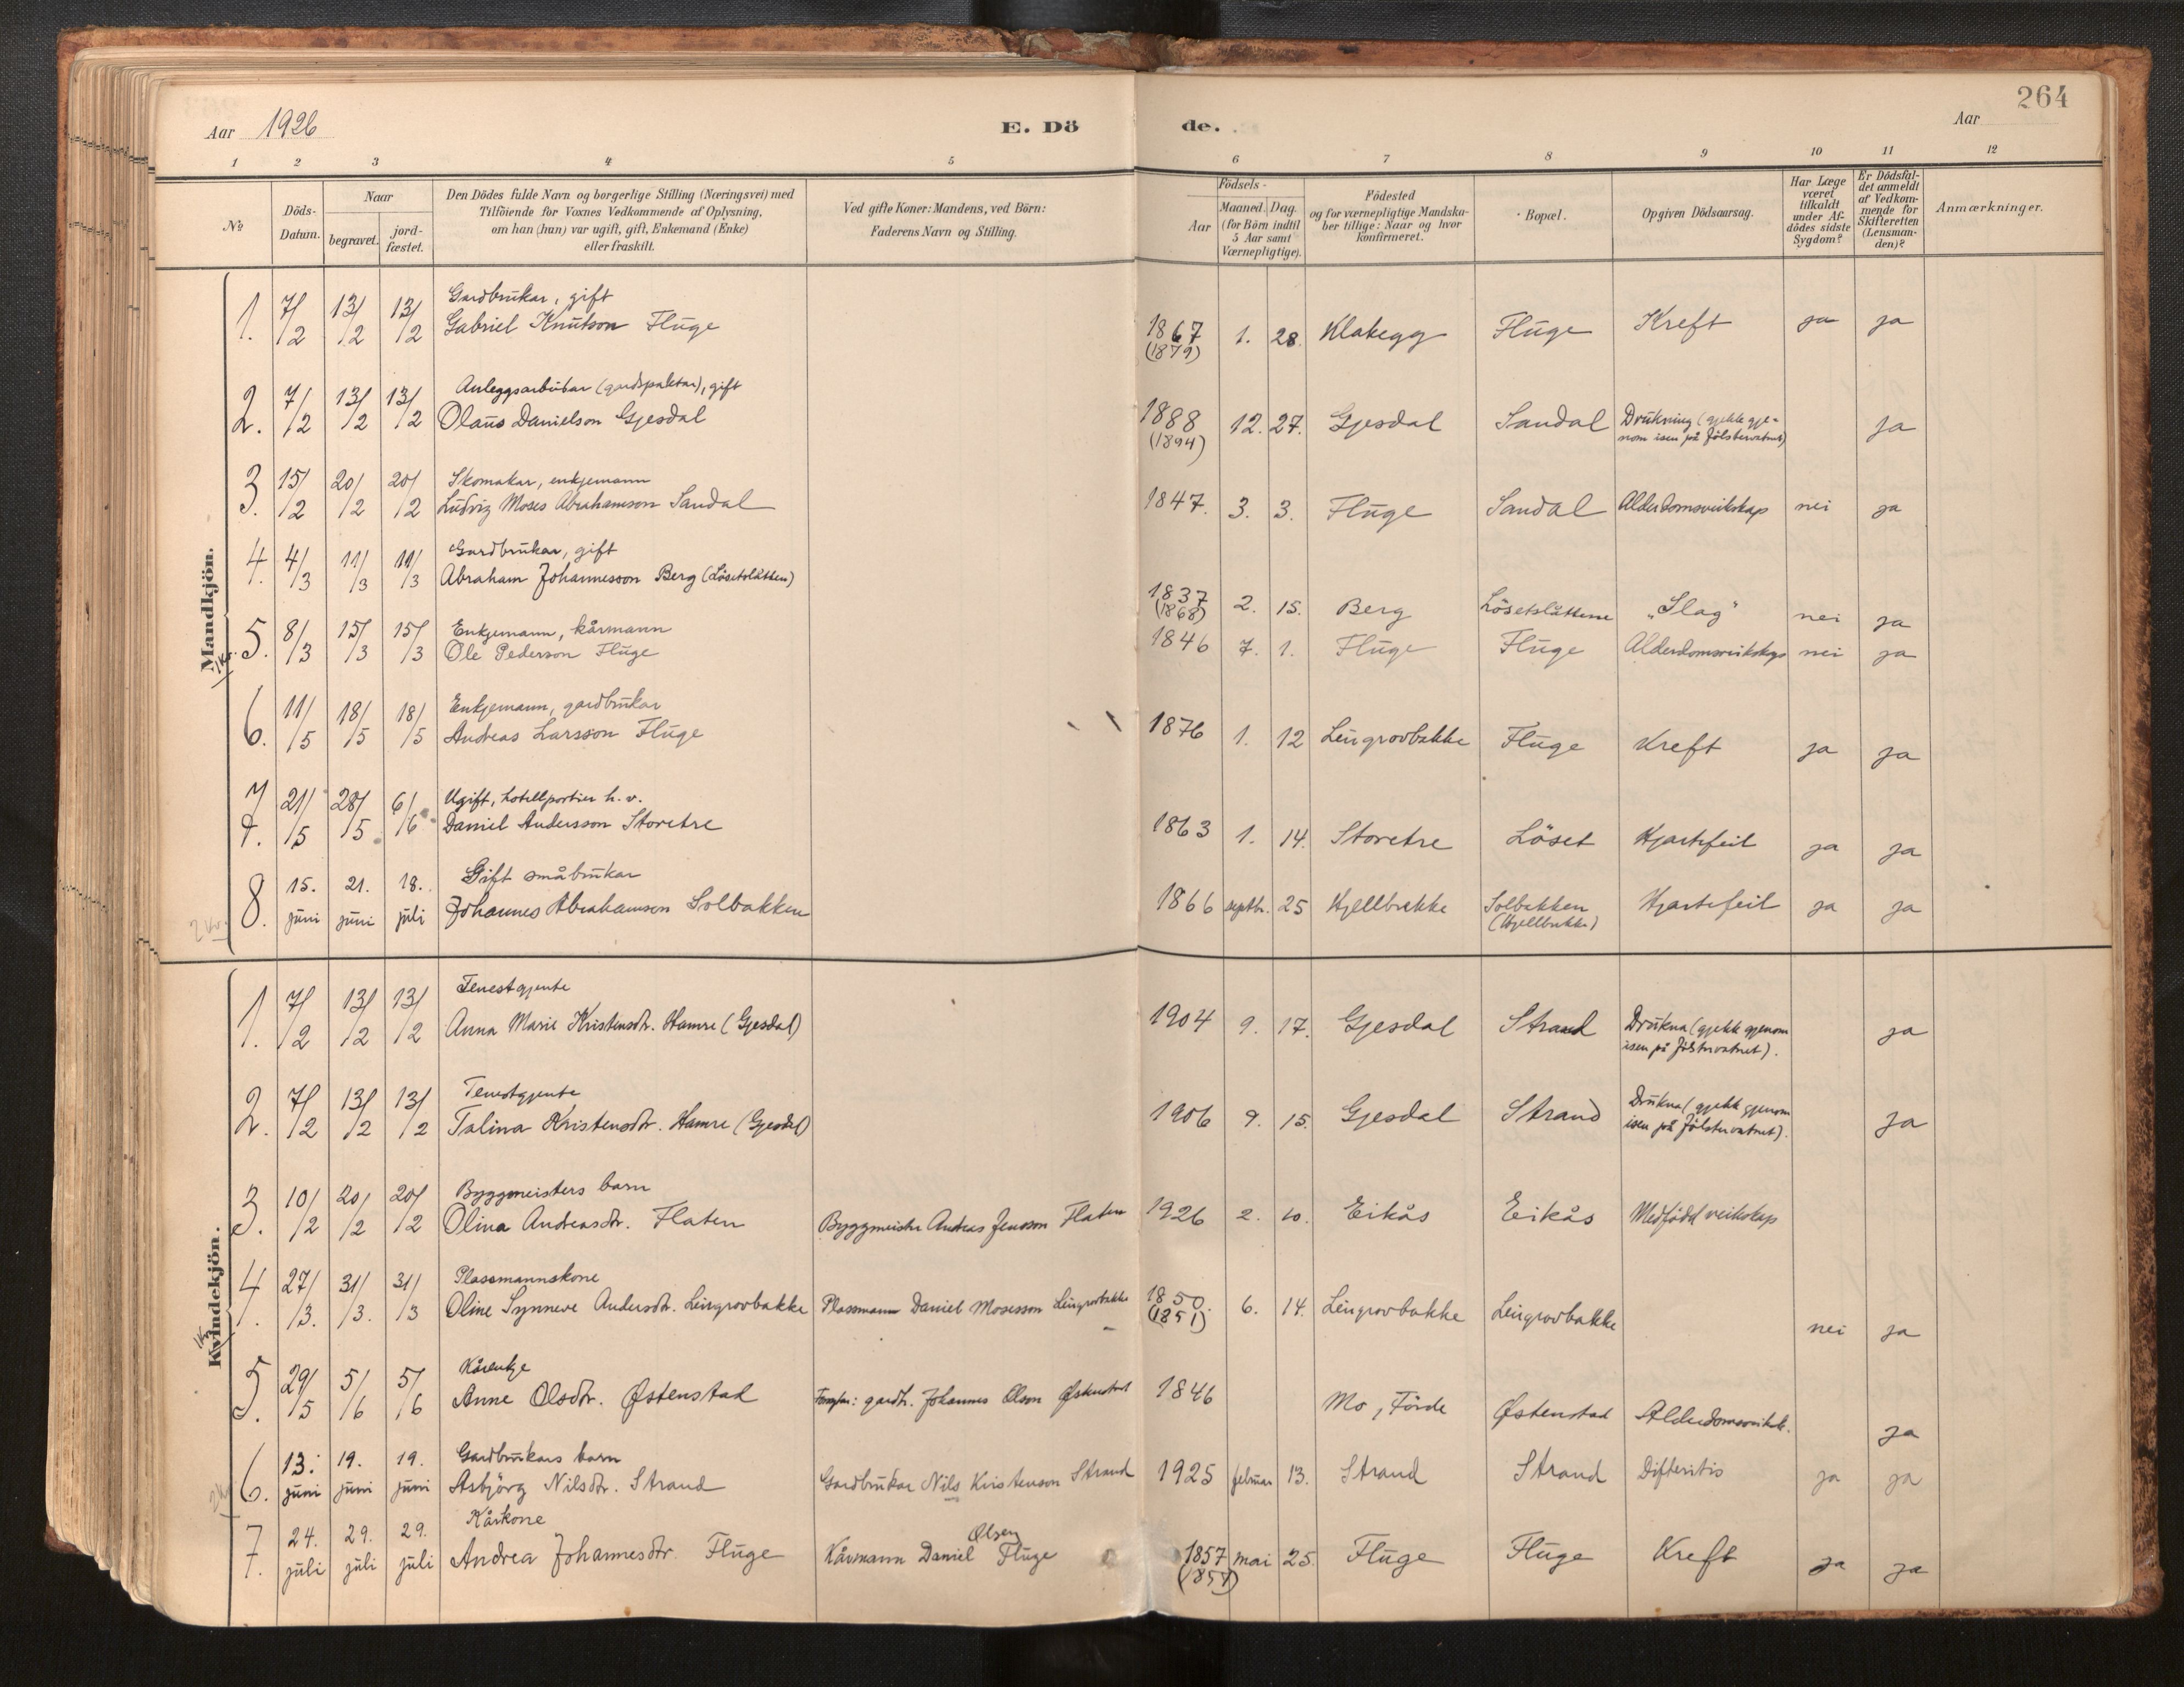 264
Aar 1926
E. Dö
de.
Aar
1 2 3 4 5 6 7 8 9 10 11 12
No
Döds-
Datum.
Naar
begravet.
jord-
fæstet.
Den Dödes fulde Navn og borgerlige Stilling (Næringsvei) med
Tilföiende for Voxnes Vedkommende af Oplysning,
om han (hun) var ugift, gift, Enkemand (Enke)
eller fraskilt.
Ved gifte Koner: Mandens, ved Börn:
Faderens Navn og Stilling.
Födsels-
Aar
Maaned. Dag.
(for Börn indtil
5 Aar samt
Værnepligtige).
Födested
og for værnepligtige Mandska-
ber tillige: Naar og hvor
konfirmeret.
Bopæl.
Opgiven Dödsaarsag.
Har Læge
været
tilkaldt
under Af-
dödes sidste
Sygdom?
Er Dödsfal-
det anmeldt
af Vedkom-
mende for
Skifteretten
(Lensman-
den)?
Anmærkninger.
Mandkjön.
Gardbrukar, gift
1. 7/2 13/2 13/2 Gabriel Knutson Fluge 1867 1. 28. Klakegg Fluge Kreft ja ja
(1879)
Anleggsarbubar (gardspaktar), gift
2. 7/2 13/2 13/2 Olaus Danielson Gjesdal 1888 12. 27. Gjesdal Sandal Drukning (gjekk gje-
(1894) nom isen på Jölstervatnet) ja
Skomakar, enkjemann
3. 15/2 20/2 20/2 Ludvig Moses Abrahamson Sandal 1847. 3. 3. Fluge Sandal Alderdomsveikskap nei ja
Gardbrukar, gift
4. 4/3 11/3 11/3 Abraham Johannesson Berg (Lösetslåtten) 1837 2. 15. Berg Lösetslåttene "Slag" nei ja
(1868)
Enkjemann, kårmann
5. 8/3 15/3 15/3 Ole Pederson Fluge 1846 7. 1. Fluge Fluge Alderdomsveikskap nei ja
Enkjemann, gardbrukar
6. 11/5 18/5 18/5 Andreas Larsson Fluge 1876 1. 12 Leingrovbakke Fluge Kreft ja ja
Ugift, hotellportier h. v.
7. 21/5 28/5 6/6 Daniel Andersson Storetre 1863 1. 14. Storetre Löset Hjartefeil ja ja
Gift småbrukar
8. 15. juni 21. juni 18. juli Johannes Abrahamson Solbakken 1866 septbr. 25 Hjellbrekke Solbakken Hjartefeil ja ja
(Hjellbrekke)
2 Kr.
Kvindekjön.
Tenestgjente
1. 7/2 13/2 13/2 Anna Marie Kristensdtr. Hamre (Gjesdal) 1904 9. 17. Gjesdal Strand Drukna (gjekk gjenom
isen på Jölstervatnet). ja
Tenestgjente
2. 7/2 13/2 13/2 Talina Kristensdtr. Hamre (Gjesdal) 1906 9. 15. Gjesdal Strand Drukna (gjekk gjenom
isen på Jölstervatnet). ja
Byggmeisters barn
3. 10/2 20/2 20/2 Olina Andreasdtr. Flaten Byggmeister Andreas Jensson Flaten 1926 2. 10. Eikås Eikås Medfödd veikskap
Plassmannskone
4. 27/3. 31/3. 31/3 Oline Synneve Andersdtr. Leingrovbakke Plassmann Daniel Mosesson Leingrovbakke 1850. 6. 14. Leingrovbakke Leingrovbakke nei ja
(1851)
Kårenkje
5. 29/5 5/6 5/6 Anne Olsdtr. Østenstad gardbr. Johannes Olson Østenstad 1846 Mo, Förde Østenstad Alderdomsveiksk. ja
Gardbrukars barn
6. 13. juni 19. juni 19. juni Asbjörg Nilsdtr. Strand Gardbrukar Nils Kristenson Strand 1925 februar 13. Strand Strand Difteritis ja ja
Kårkone
7. 24. juli 29. juli 29. juli Andrea Johannesdtr. Fluge Kårmann Daniel Olsen Fluge 1857 mai 25. Fluge Fluge Kreft ja ja
(1857)